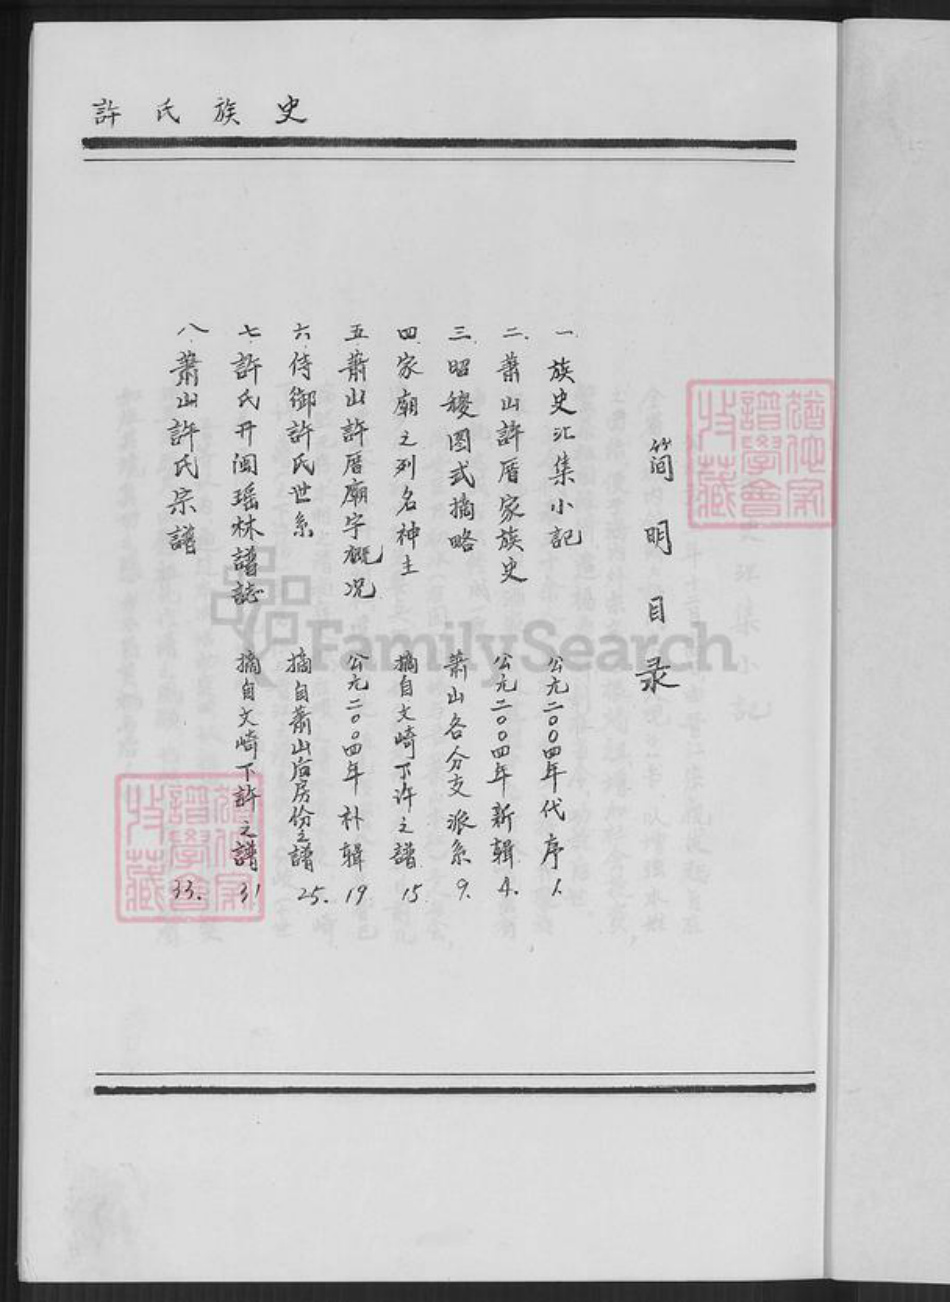 許氏族史
簡明目录
一.族史汇集小記 公元二〇〇四年代序 1.
二.蕭山許厝家族史 公元二〇〇四年新輯 4.
三.昭穆图式摘略 蕭山各分支派系 9.
四.家廟之列名神主 摘自文崎下许之譜 15
五.蕭山許厝廟宇概况 公元二〇〇四年补輯 19
六.侍御許氏世系 摘自蕭山后房份之譜 25.
七.許氏开闽瑶林譜誌 摘自文崎下許之譜 31
八.蕭山許氏宗譜 33.
猶他家
譜學會
收藏
猶他家
譜學會
收藏
FamilySearch